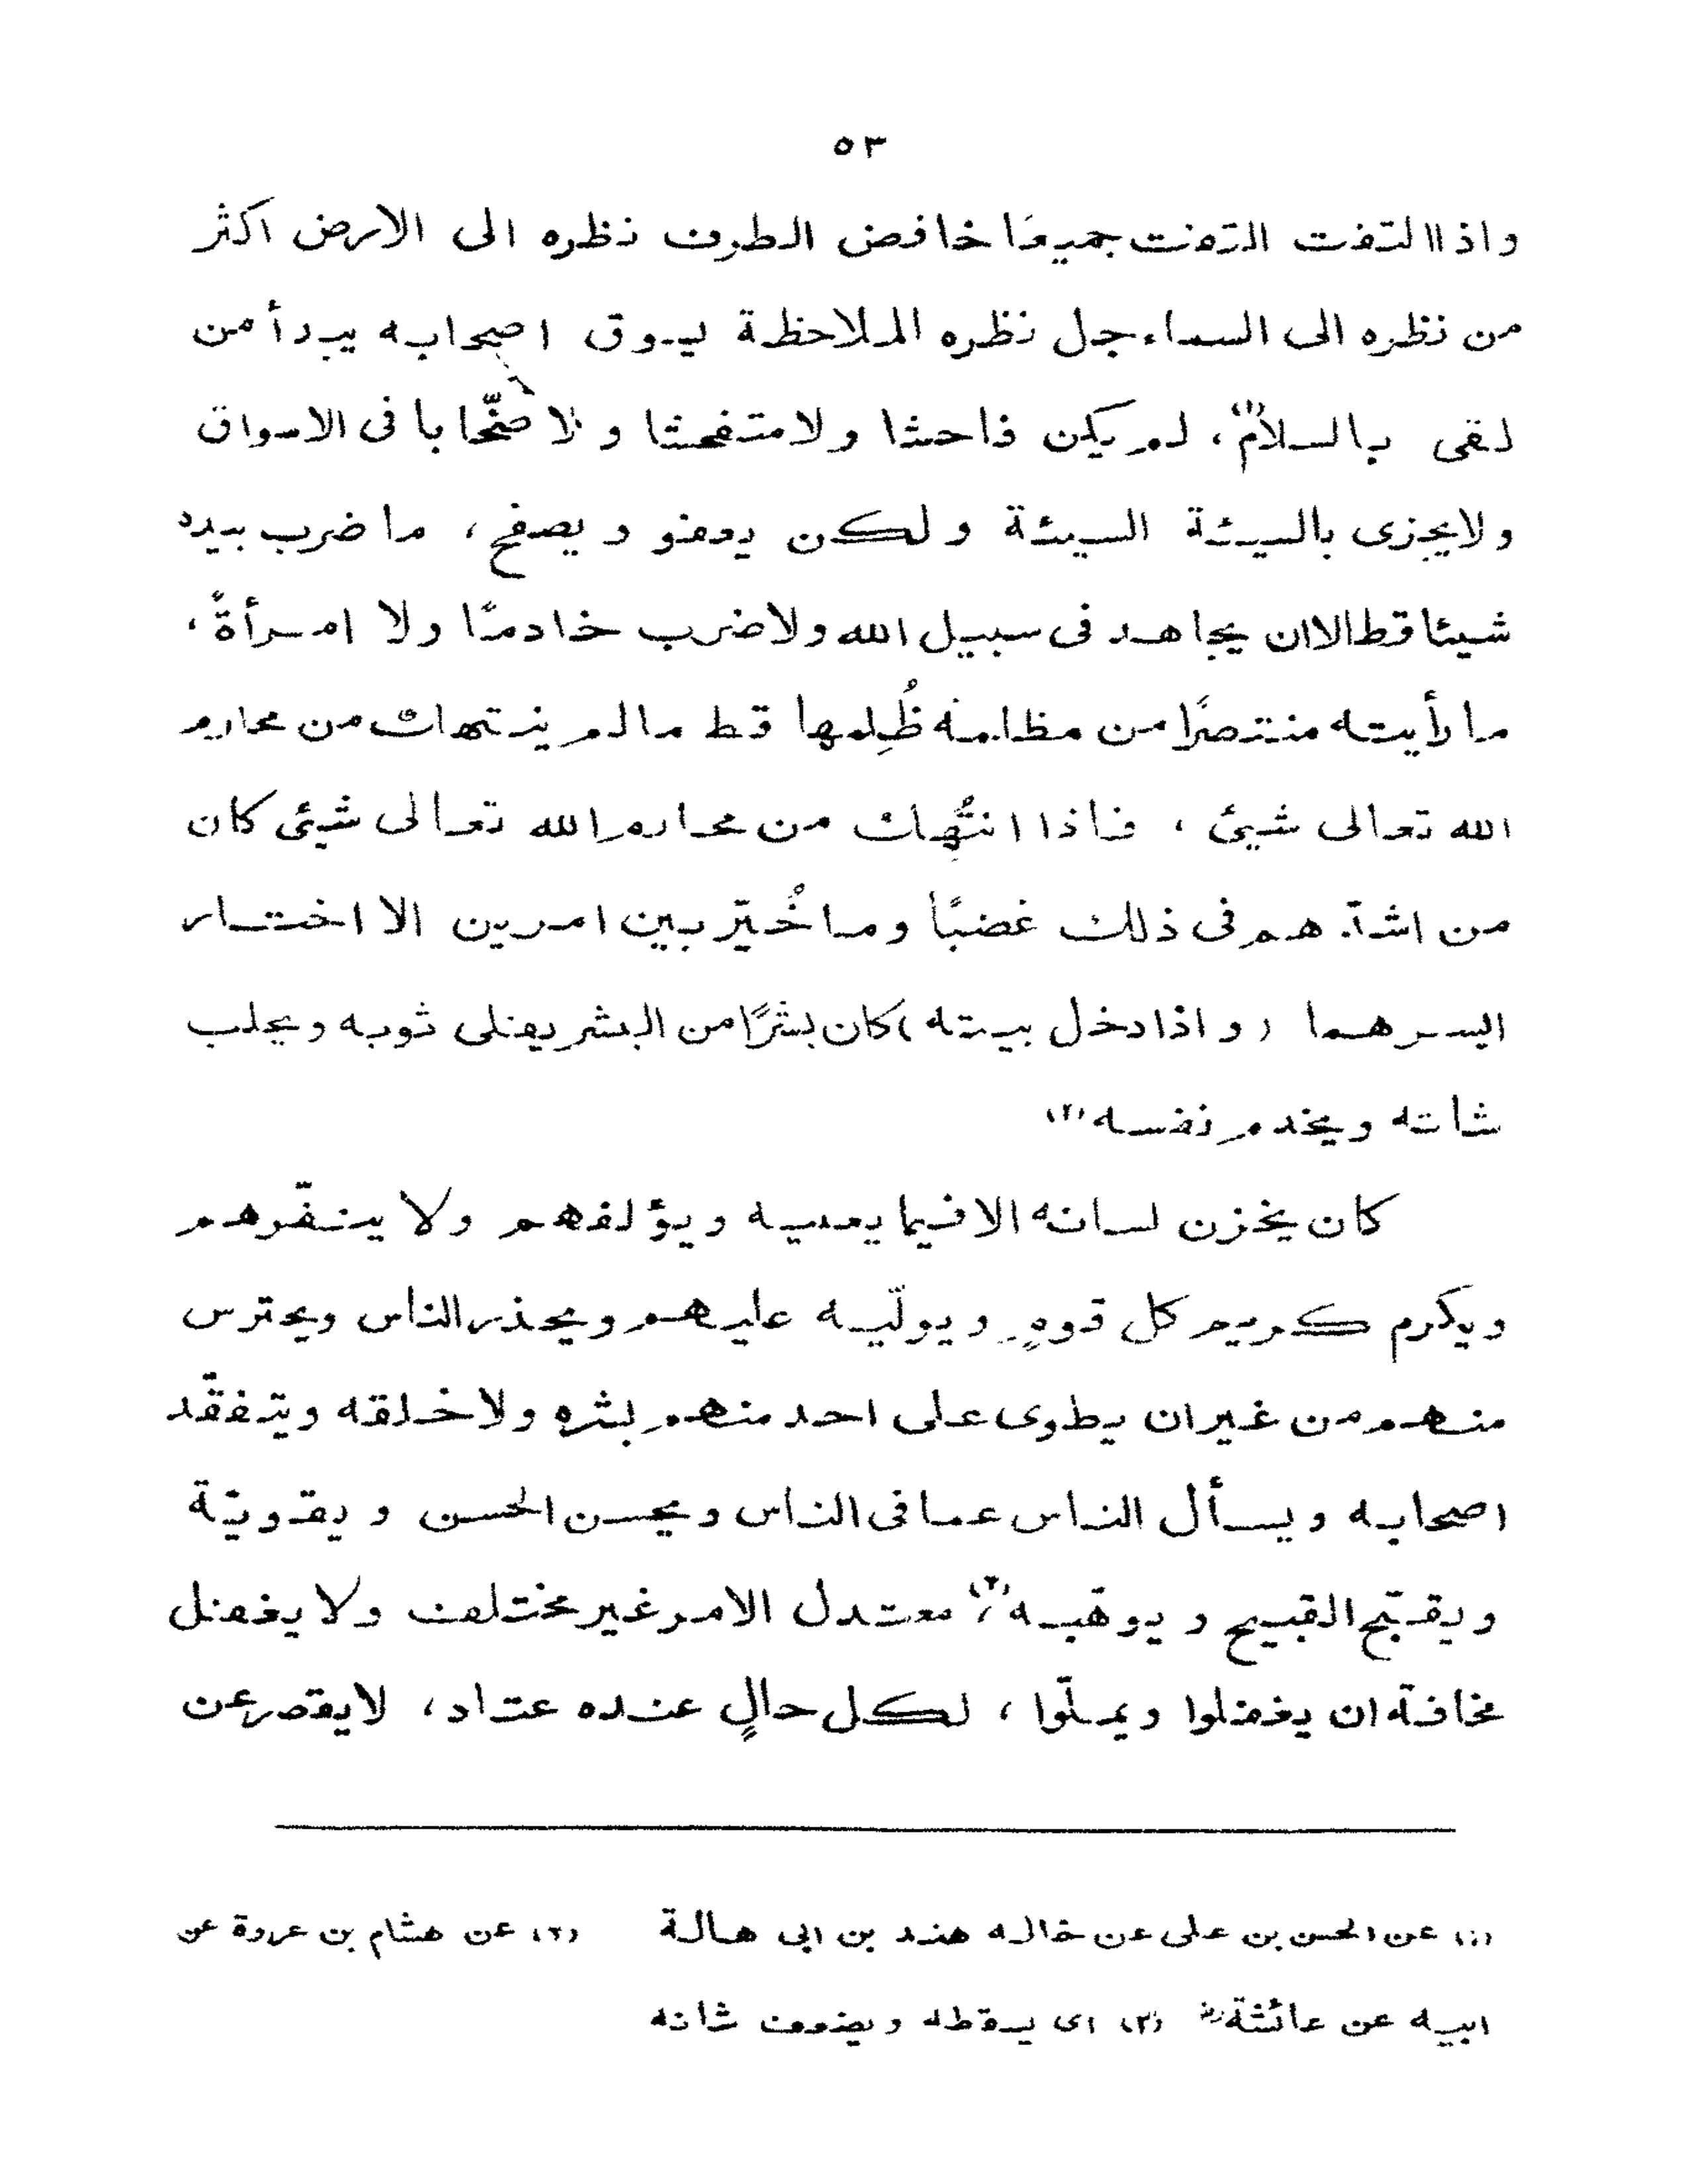 ٥٣
واذا التفت التفت جميعًا خافض الطرف نظره الى الارض اكثر
من نظره الى السماء، جل نظره الملاحظة يسوق اصحابه يبدأ من
لقى بالسلام(١)، لم يكن فاحشا ولا متفحشا و لا صخّابا فى الاسواق
ولا يجزى بالسيئة السيئة ولكن يعفو و يصفح، ما ضرب بيده
شيئا قط الا ان يجاهد فى سبيل الله ولا ضرب خادمًا ولا امرأةً،
ما رأيته منتصرًا من مظلمة ظُلِمها قط ما لم ينتهك من محارم
الله تعالى شيئ ، فاذا انتُهِك من محارم الله تعالى شيئى كان
من اشدّهم فى ذلك غضبًا وما خُيّر بين امرين الا اختار
ايسرهما (و اذا دخل بيته) كان بشرًا من البشر يفلى ثوبه ويحلب
شاته ويخدم نفسه(٢)
كان يخزن لسانه الا فيما يعنيه ويؤلفهم ولا ينفّرهم
ويكرم كريم كل قومٍ ويولّيه عليهم ويحذر الناس ويحترس
منهم من غيران يطوى على احد منهم بشره ولا خلقه ويتفقّد
اصحابه ويسأل الناس عما فى الناس ويحسن الحسن ويقويّة
ويقبّح القبيح ويوهّبه(٣)، معتدل الامر غير مختلف ولا يغفل
مخافة ان يغفلوا ويملّوا ، لكل حالٍ عنده عتاد، لا يقصر عن
(١) عن الحسن بن على عن خاله هند بن ابى هالة (٢) عن هشام بن عروة عن
ابيه عن عائشةؓ (٣) اى يسقطه ويضعف شانه